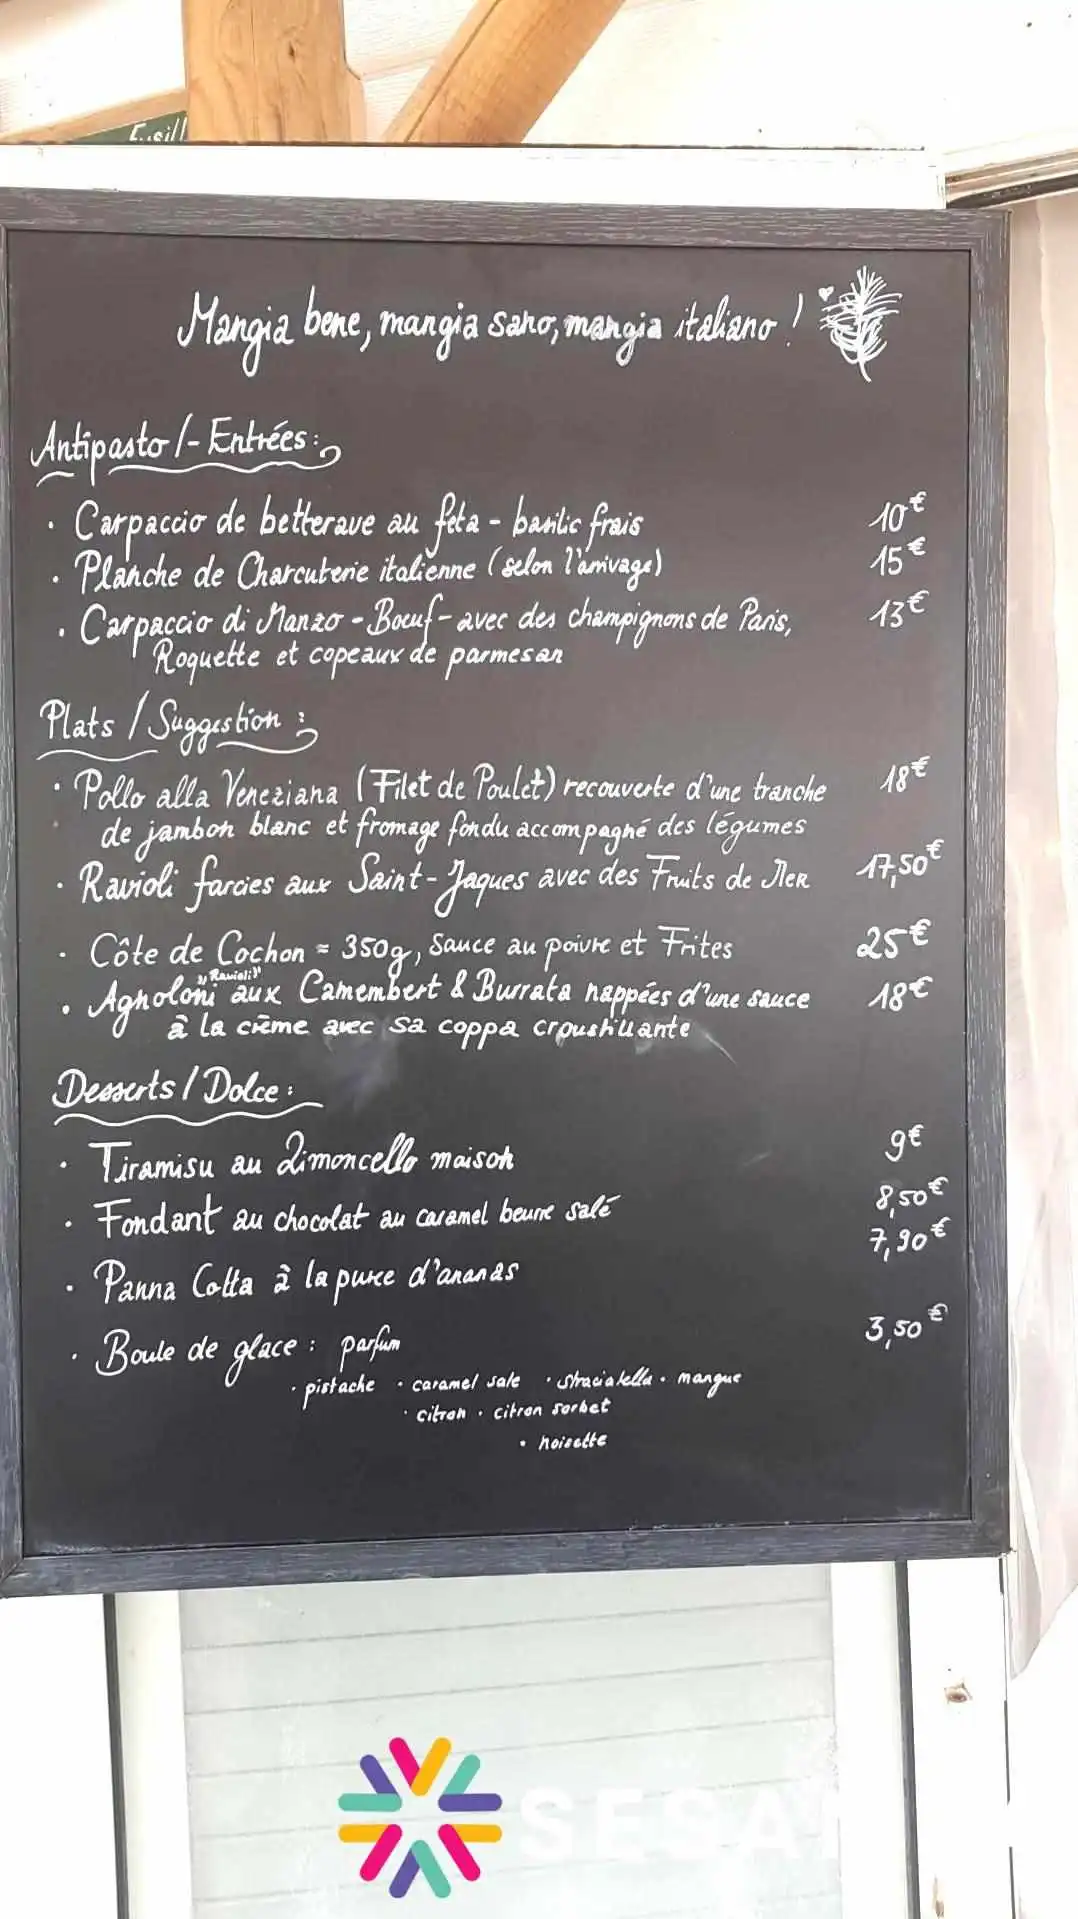 Fusill
Mangia bene, mangia sano, mangia italiano !
Antipasto /- Entrées :
· Carpaccio de betterave au feta - basilic frais 10€
· Planche de Charcuterie italienne (selon l'arrivage) 15€
· Carpaccio di Manzo - Boeuf - avec des champignons de Paris, 13€
Roquette et copeaux de parmesan
Plats / Suggestion :
· Pollo alla Veneziana (Filet de Poulet) recouverte d'une tranche 18€
de jambon blanc et fromage fondu accompagné des légumes
· Ravioli farcies aux Saint-Jaques avec des Fruits de Mer 17,50€
· Côte de Cochon ≈ 350g, Sauce au poivre et Frites 25€
"Ravioli"
· Agnoloni aux Camembert & Burrata nappées d'une sauce 18€
à la crème avec sa coppa croustillante
Desserts / Dolce :
· Tiramisu au Limoncello maison 9€
· Fondant au chocolat au caramel beurre salé 8,50€
· Panna Cotta à la puree d'ananas 7,90€
· Boule de glace : parfum 3,50€
· pistache · caramel sale · straciatella · mangue
· citron · citron sorbet
· noisette
SESA